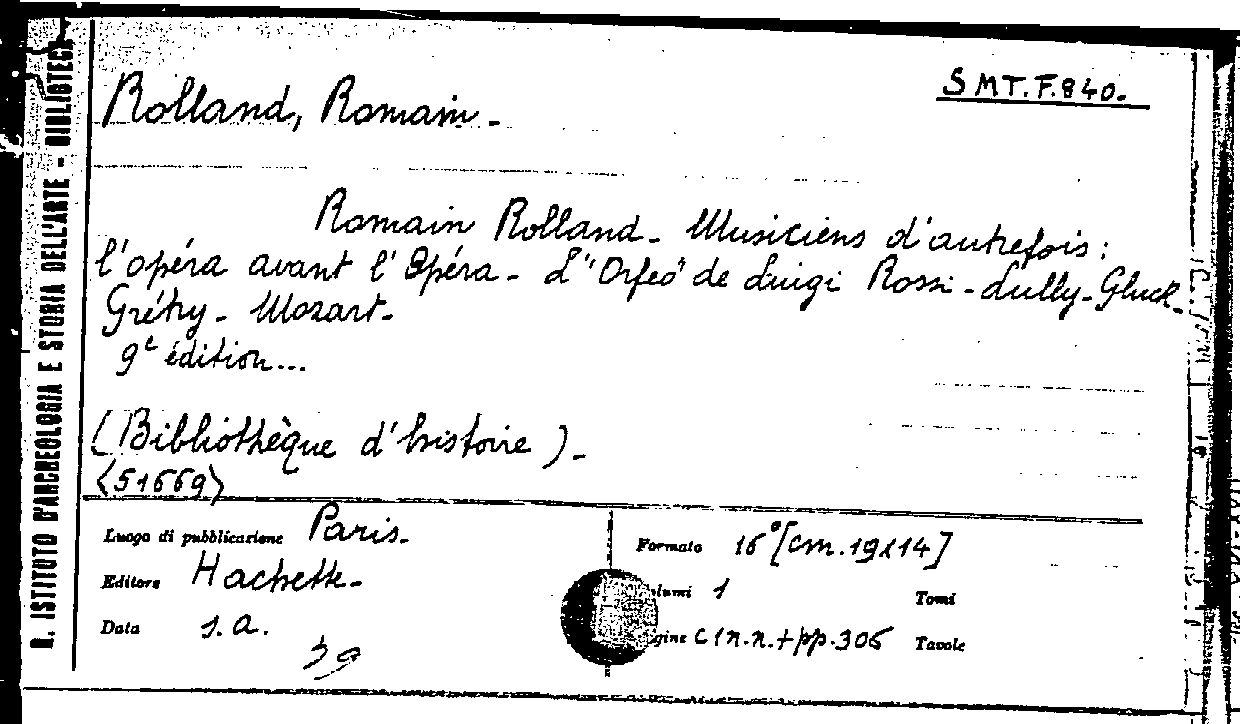 R. ISTITUTO D'ARCHEOLOGIA E STORIA DELL'ARTE - BIBLIOTECA
SMT.F.840.
Rolland, Romain.-
Romain Rolland- Musiciens d'autrefois:
l'opéra avant l'Opéra- L'"Orfeo" de Luigi Rossi-Lully-Gluck.
Grétry- Mozart-
9e édition...
(Bibliothèque d'histoire).-
<51669>
Luogo di pubblicazione Paris.
Editore Hachette-
Data s.a.
Formato 16°[cm.19x14]
olumi 1 Tomi
gine c1n.n.+pp.306 Tavole